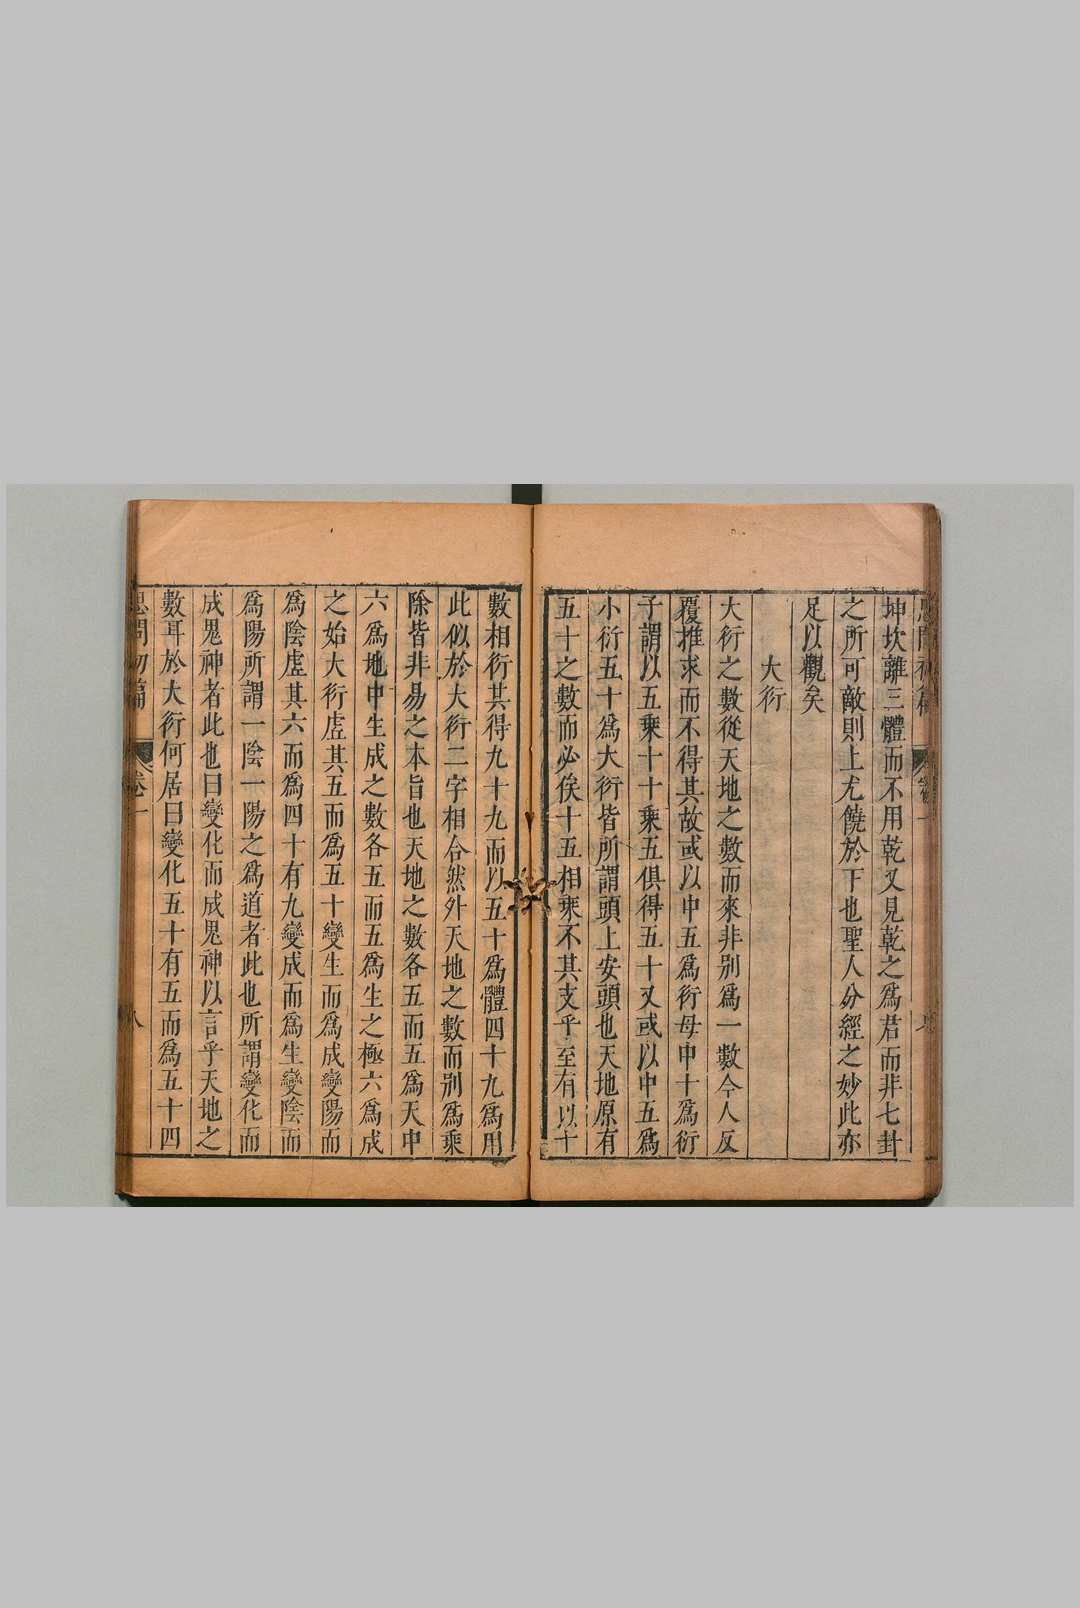 坤坎離三體而不用乾又見乾之爲君而非七卦
之所可敵則上尤饒於下也聖人分經之妙此亦
足以觀矣
大衍
大衍之數從天地之數而來非别爲一數今人反
覆推求而不得其故或以中五爲衍母中十爲衍
子謂以五乘十十乘五俱得五十又或以中五爲
小衍五十爲大衍皆所謂頭上安頭也天地原有
五十之數而必俟十五相乘不其支乎至有以十
數相衍其得九十九而以五十爲體四十九爲用
此似於大衍二字相合然外天地之數而别爲乘
除皆非易之本旨也天地之數各五而五爲天中
六爲地中生成之數各五而五爲生之極六爲成
之始大衍虗其五而爲五十變生而爲成變陽而
爲陰虗其六而爲四十有九變成而爲生變陰而
爲陽所謂一陰一陽之爲道者此也所謂變化而
成鬼神者此也曰變化而成鬼神以言乎天地之
數耳於大衍何居曰變化五十有五而爲五十四
思問初編 卷一 八